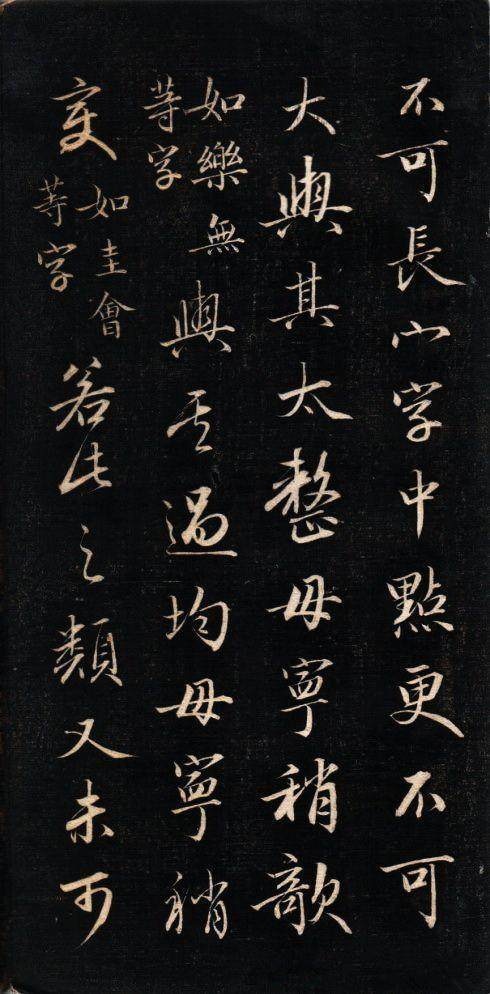 不可長宀字中點更不可
大與其太整毋寧稍欹
如樂無
等字
與其過均毋寧稍
變
如圭會
等字
若此之類又未可